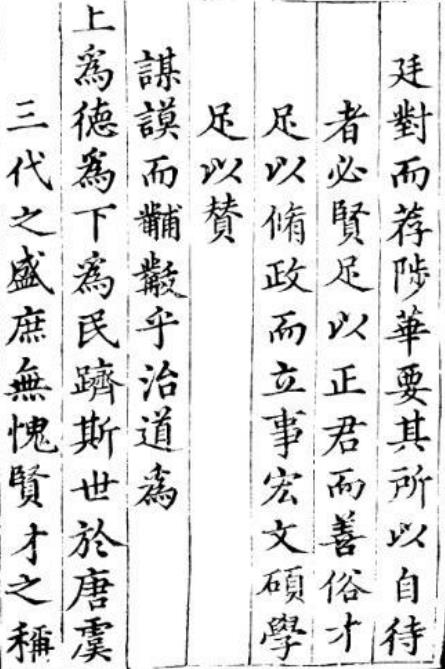 廷對而荐陟華要其所以自待
者必賢足以正君而善俗才
足以脩政而立事宏文碩學
足以賛
謀謨而黼黻乎治道爲
上爲徳爲下爲民躋斯世於唐虞
三代之盛庶無愧賢才之稱